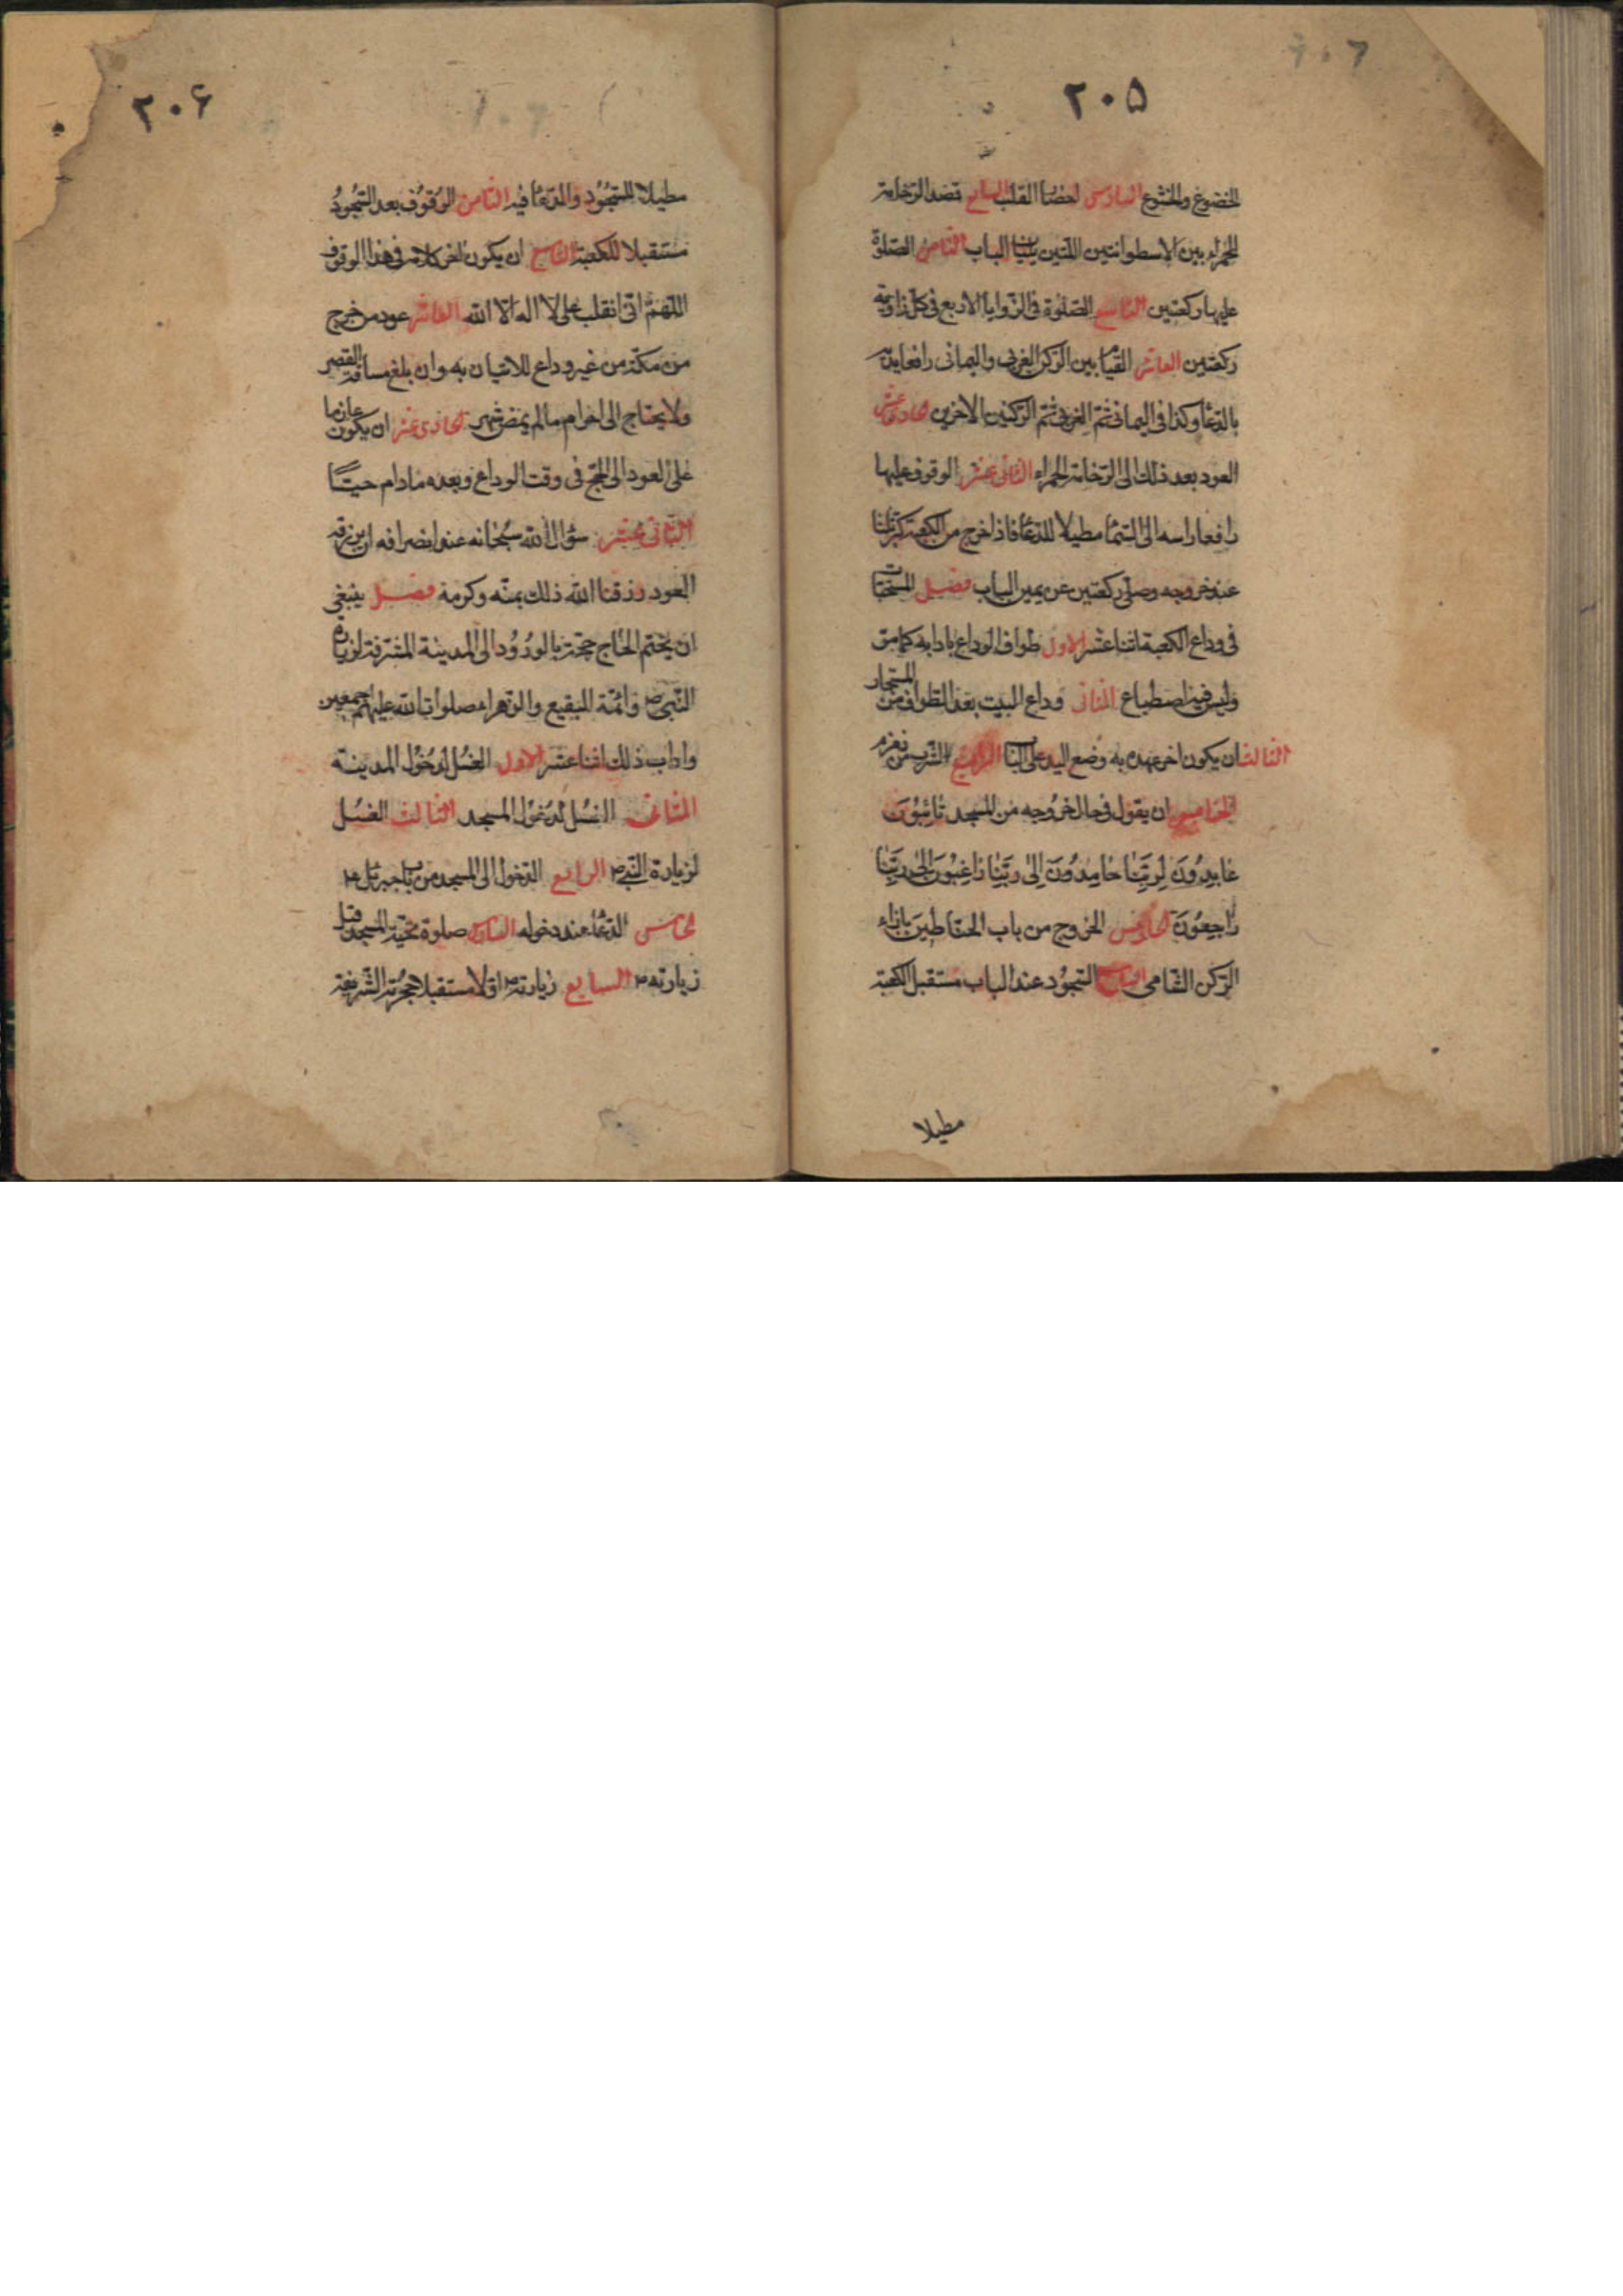 ٢٠۵
الخضوع والخشوع السادس احضار القلب السابع قصد الرخامة
الحمراء بين الاسطوانتين اللتين يليان الباب الثامن الصلوة
عليها ركعتين التاسع الصلوة فى الزوايا الاربع فى كل زاوية
ركعتين العاشر القيام بين الركن الغربى واليمانى رافعا يديه
بالدعاء وكذا فى اليمانى ثم الغربى ثم الركنين الاخرين الحادى عشر
العود بعد ذلك الى الرخامة الحمراء الثانى عشر الوقوف عليها
رافعا راسه الى السماء مطيلا للدعاء فاذا خرج من الكعبة كبر ثلثا
عند خروجه وصلى ركعتين عن يمين الباب فصل المستحبات
فى وداع الكعبة اثنا عشر الاول طواف الوداع بادابه كما مر
وليس فيه اضطباع الثانى وداع البيت بعد الطواف من المستجار
الثالث ان يكون اخر عهده به وضع اليد على الباب الرابع الشرب من زمزم
الخامس ان يقول فى حال خروجه من المسجد تائبون
عابدون لربنا حامدون الى ربنا راغبون الى ربنا
راجعون السادس الخروج من باب الحناطين بازاء
الركن الشامى السابع السجود عند الباب مستقبل الكعبة
مطيلا
٢٠۶
مطيلا للسجود والدعاء فيه الثامن الوقوف بعد السجود
مستقبلا للكعبة التاسع ان يكون اخر كلامه فى هذا الوقوف
اللهم انى انقلب على لا اله الا الله العاشر عود من خرج
من مكة من غير وداع للاتيان به وان بلغ مسافة القصر
ولا يحتاج الى احرام ما لم يمض شهر الحادى عشر ان يكون عازما
على العود الى الحج فى وقت الوداع وبعده ما دام حيا
الثانى عشر سؤال الله سبحانه عند انصرافه ان يرزقه
العود رزقنا الله ذلك بمنه وكرمه فصل ينبغى
ان يختم الحاج حجه بالورود الى المدينة المشرفة لزيارة
النبى ص وائمة البقيع والزهراء صلوات الله عليهم اجمعين
واداب ذلك اثنا عشر الاول الغسل لدخول المدينة
الثانى الغسل لدخول المسجد الثالث الغسل
لزيارة النبى ص الرابع الدخول الى المسجد من باب جبرئيل ع
الخامس الدعاء عند دخوله السادس صلوة تحية المسجد قبل
زيارته ص السابع زيارته ص اولا مستقبلا حجرته الشريفة